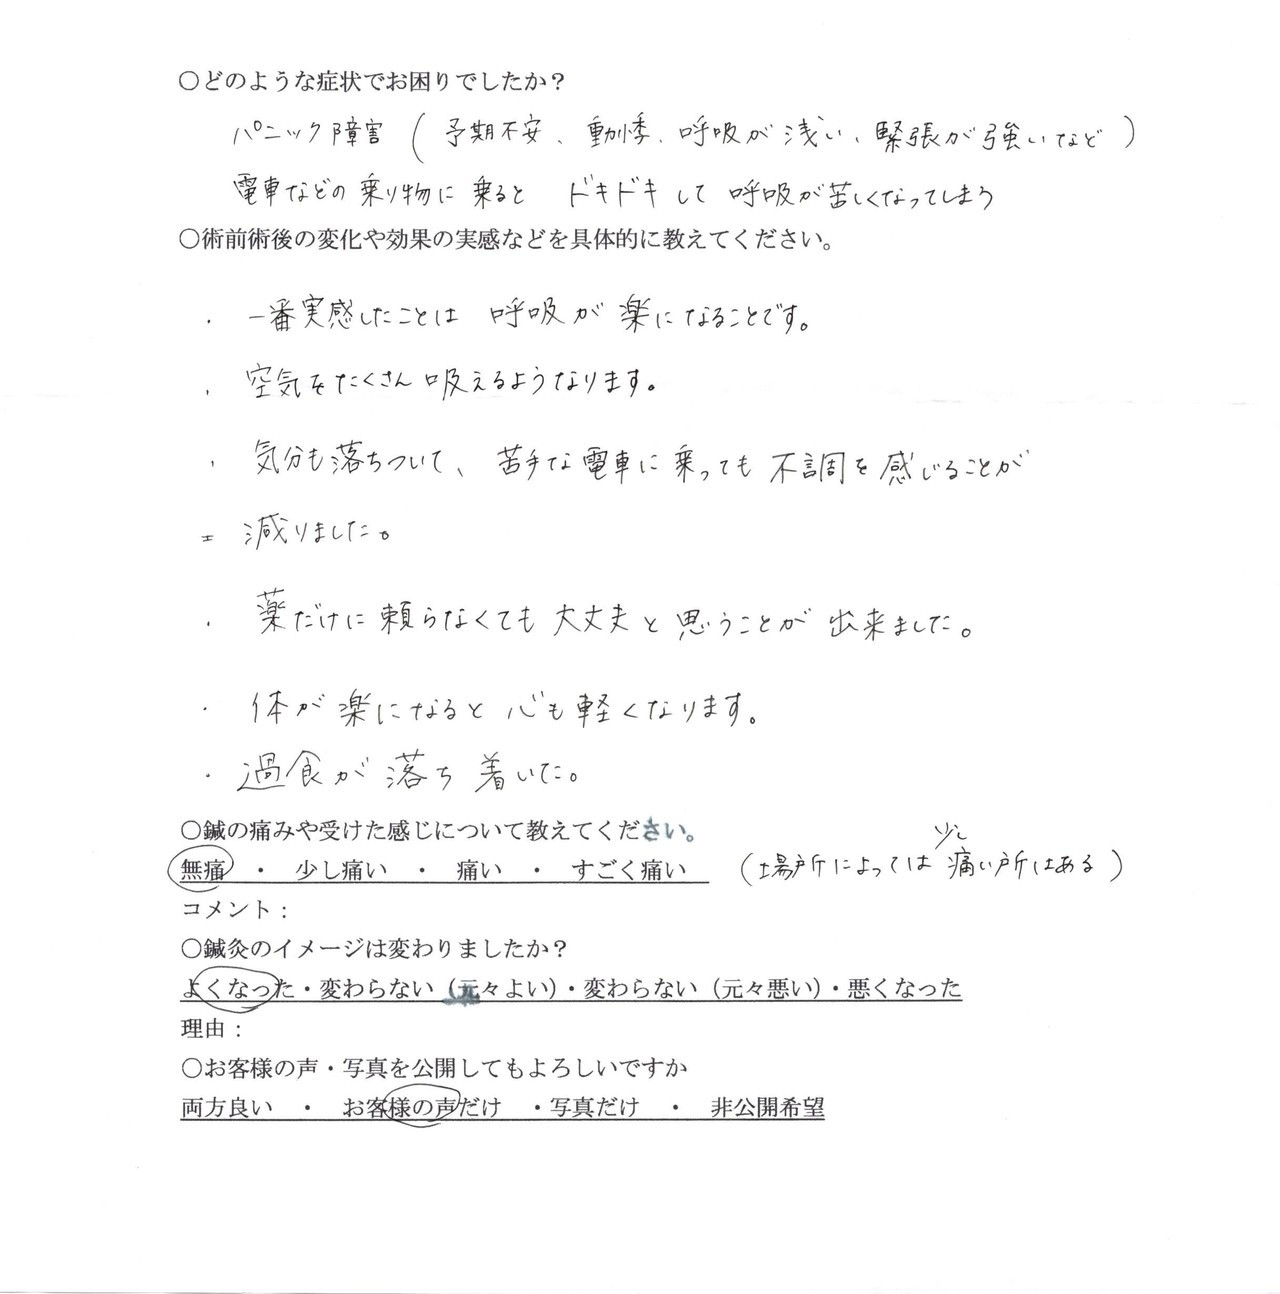 ○どのような症状でお困りでしたか？
パニック障害(予期不安、動悸、呼吸が浅い、緊張が強いなど)
電車などの乗り物に乗ると ドキドキして呼吸が苦しくなってしまう
○術前術後の変化や効果の実感などを具体的に教えてください。
・一番実感したことは 呼吸が楽になることです。
・空気をたくさん吸えるようなります。
・気分も落ちついて、苦手な電車に乗っても不調を感じることが
= 減りました。
・薬だけに頼らなくても大丈夫と思うことが出来ました。
・体が楽になると心も軽くなります。
・過食が落ち着いた。
○鍼の痛みや受けた感じについて教えてください。
無痛 ・ 少し痛い ・ 痛い ・ すごく痛い (場所によっては少し痛い所はある)
コメント：
○鍼灸のイメージは変わりましたか？
よくなった・変わらない（元々よい）・変わらない（元々悪い）・悪くなった
理由：
○お客様の声・写真を公開してもよろしいですか
両方良い ・ お客様の声だけ ・写真だけ ・ 非公開希望